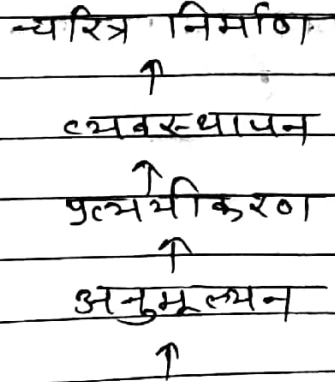 चरित्र निर्माण
↑
व्यवस्थापन
↑
प्रत्ययीकरण
↑
अनुमूल्यन
↑